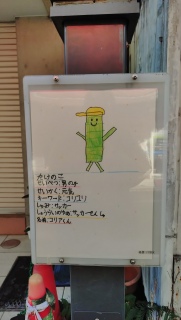 たけのこ
せいべつ:男の子
せいかく:元気
キーワード:ユリユリ
しゅみ:サッカー
しょうらいのゆめ:サッカーせんしゅ
名前:ユリアくん